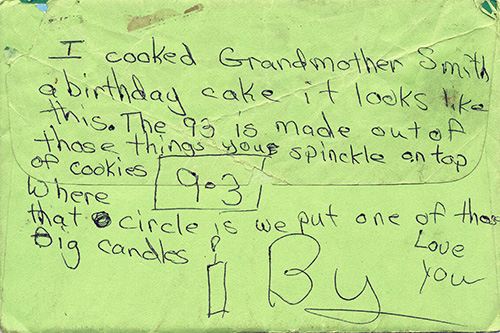 I cooked Grandmother Smith
a birthday cake it looks like
this. The 93 is made out of
those things yous spinckle on top
of cookies 9·3
Where
that circle is we put one of those
Big candles
Love
you
By